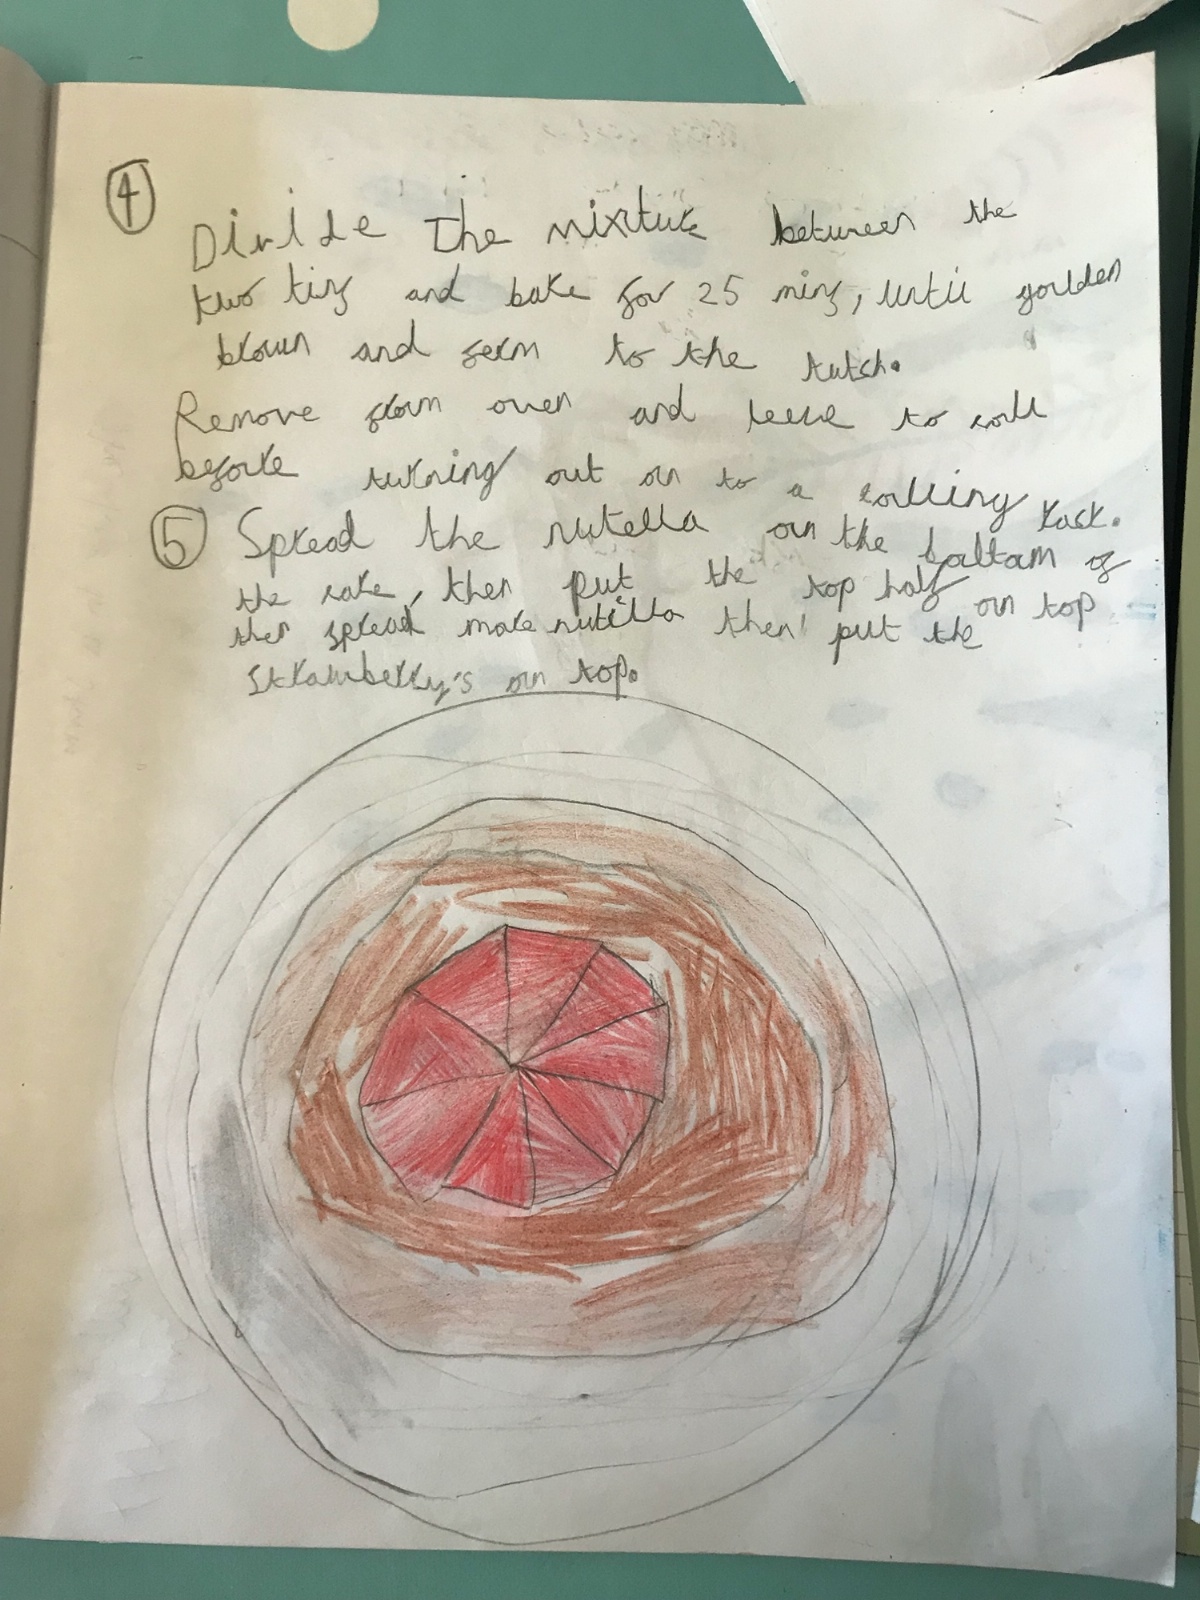 4
Divide the mixture between the
two tins and bake for 25 mins, until goulden
brown and ferm to the tutch.
Remove from oven and leeve to coll
before turning out on to a colling rack.
5 Spread the nutella on the bottom of
the cake, then put the top half on top
then spread more nutilla then put the
Strawberry's on top.